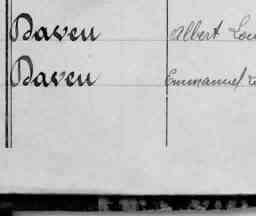 Daveu Albert Lou
Daveu Emmanuel